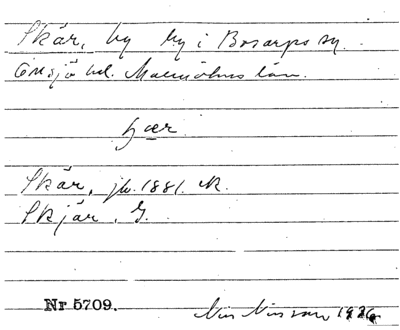 Skär, by by i Bosarps sn.
Onsjö hd. Malmöhus län.
ɧær
Skär, jb. 1881. R.
Skjär. G.
Nr 5709. Nils Nilsson 1926